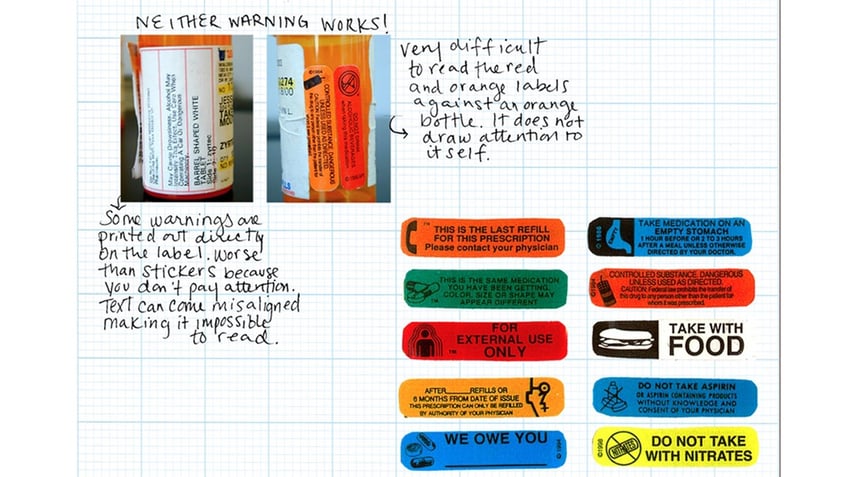 NEITHER WARNING WORKS!
May Cause Drowsiness. Alcohol May
Intensify This Effect. Use Care When
Operating A Car Or Dangerous
Machinery.
BARREL SHAPED WHITE
TABLET
Side 1: zyrtec
TAKE
ZYRT
CONTROLLED SUBSTANCE, DANGEROUS
UNLESS USED AS DIRECTED.
DO NOT DRINK
ALCOHOLIC BEVERAGES
Very difficult
to read the red
and orange labels
against an orange
bottle. It does not
draw attention to
itself.
Some warnings are
printed out directly
on the label. Worse
than stickers because
you don't pay attention.
Text can come misaligned
making it impossible
to read.
THIS IS THE LAST REFILL
FOR THIS PRESCRIPTION
Please contact your physician
TAKE MEDICATION ON AN
EMPTY STOMACH
1 HOUR BEFORE OR 2 TO 3 HOURS
AFTER A MEAL UNLESS OTHERWISE
DIRECTED BY YOUR DOCTOR.
©1996
THIS IS THE SAME MEDICATION
YOU HAVE BEEN GETTING.
COLOR, SIZE OR SHAPE MAY
APPEAR DIFFERENT
CONTROLLED SUBSTANCE, DANGEROUS
UNLESS USED AS DIRECTED.
CAUTION: Federal law prohibits the transfer of
this drug to any person other than the patient for
whom it was prescribed.
FOR
EXTERNAL USE
ONLY
TAKE WITH
FOOD
AFTER____REFILLS OR
6 MONTHS FROM DATE OF ISSUE
THIS PRESCRIPTION CAN ONLY BE REFILLED
BY AUTHORITY OF YOUR PHYSICIAN
DO NOT TAKE ASPIRIN
OR ASPIRIN CONTAINING PRODUCTS
WITHOUT KNOWLEDGE AND
CONSENT OF YOUR PHYSICIAN
WE OWE YOU
DO NOT TAKE
WITH NITRATES
NITRATES
©1998